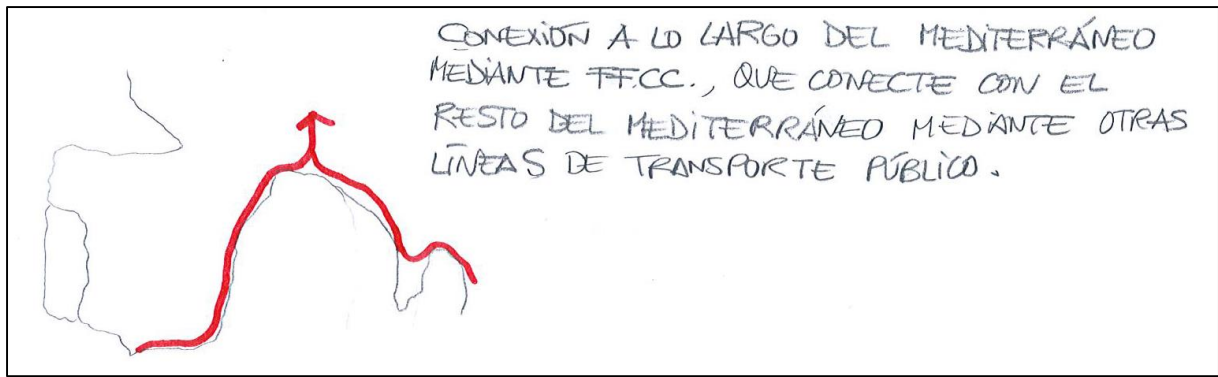 CONEXIÓN A LO LARGO DEL MEDITERRÁNEO
MEDIANTE FF.CC., QUE CONECTE CON EL
RESTO DEL MEDITERRÁNEO MEDIANTE OTRAS
LÍNEAS DE TRANSPORTE PÚBLICO.